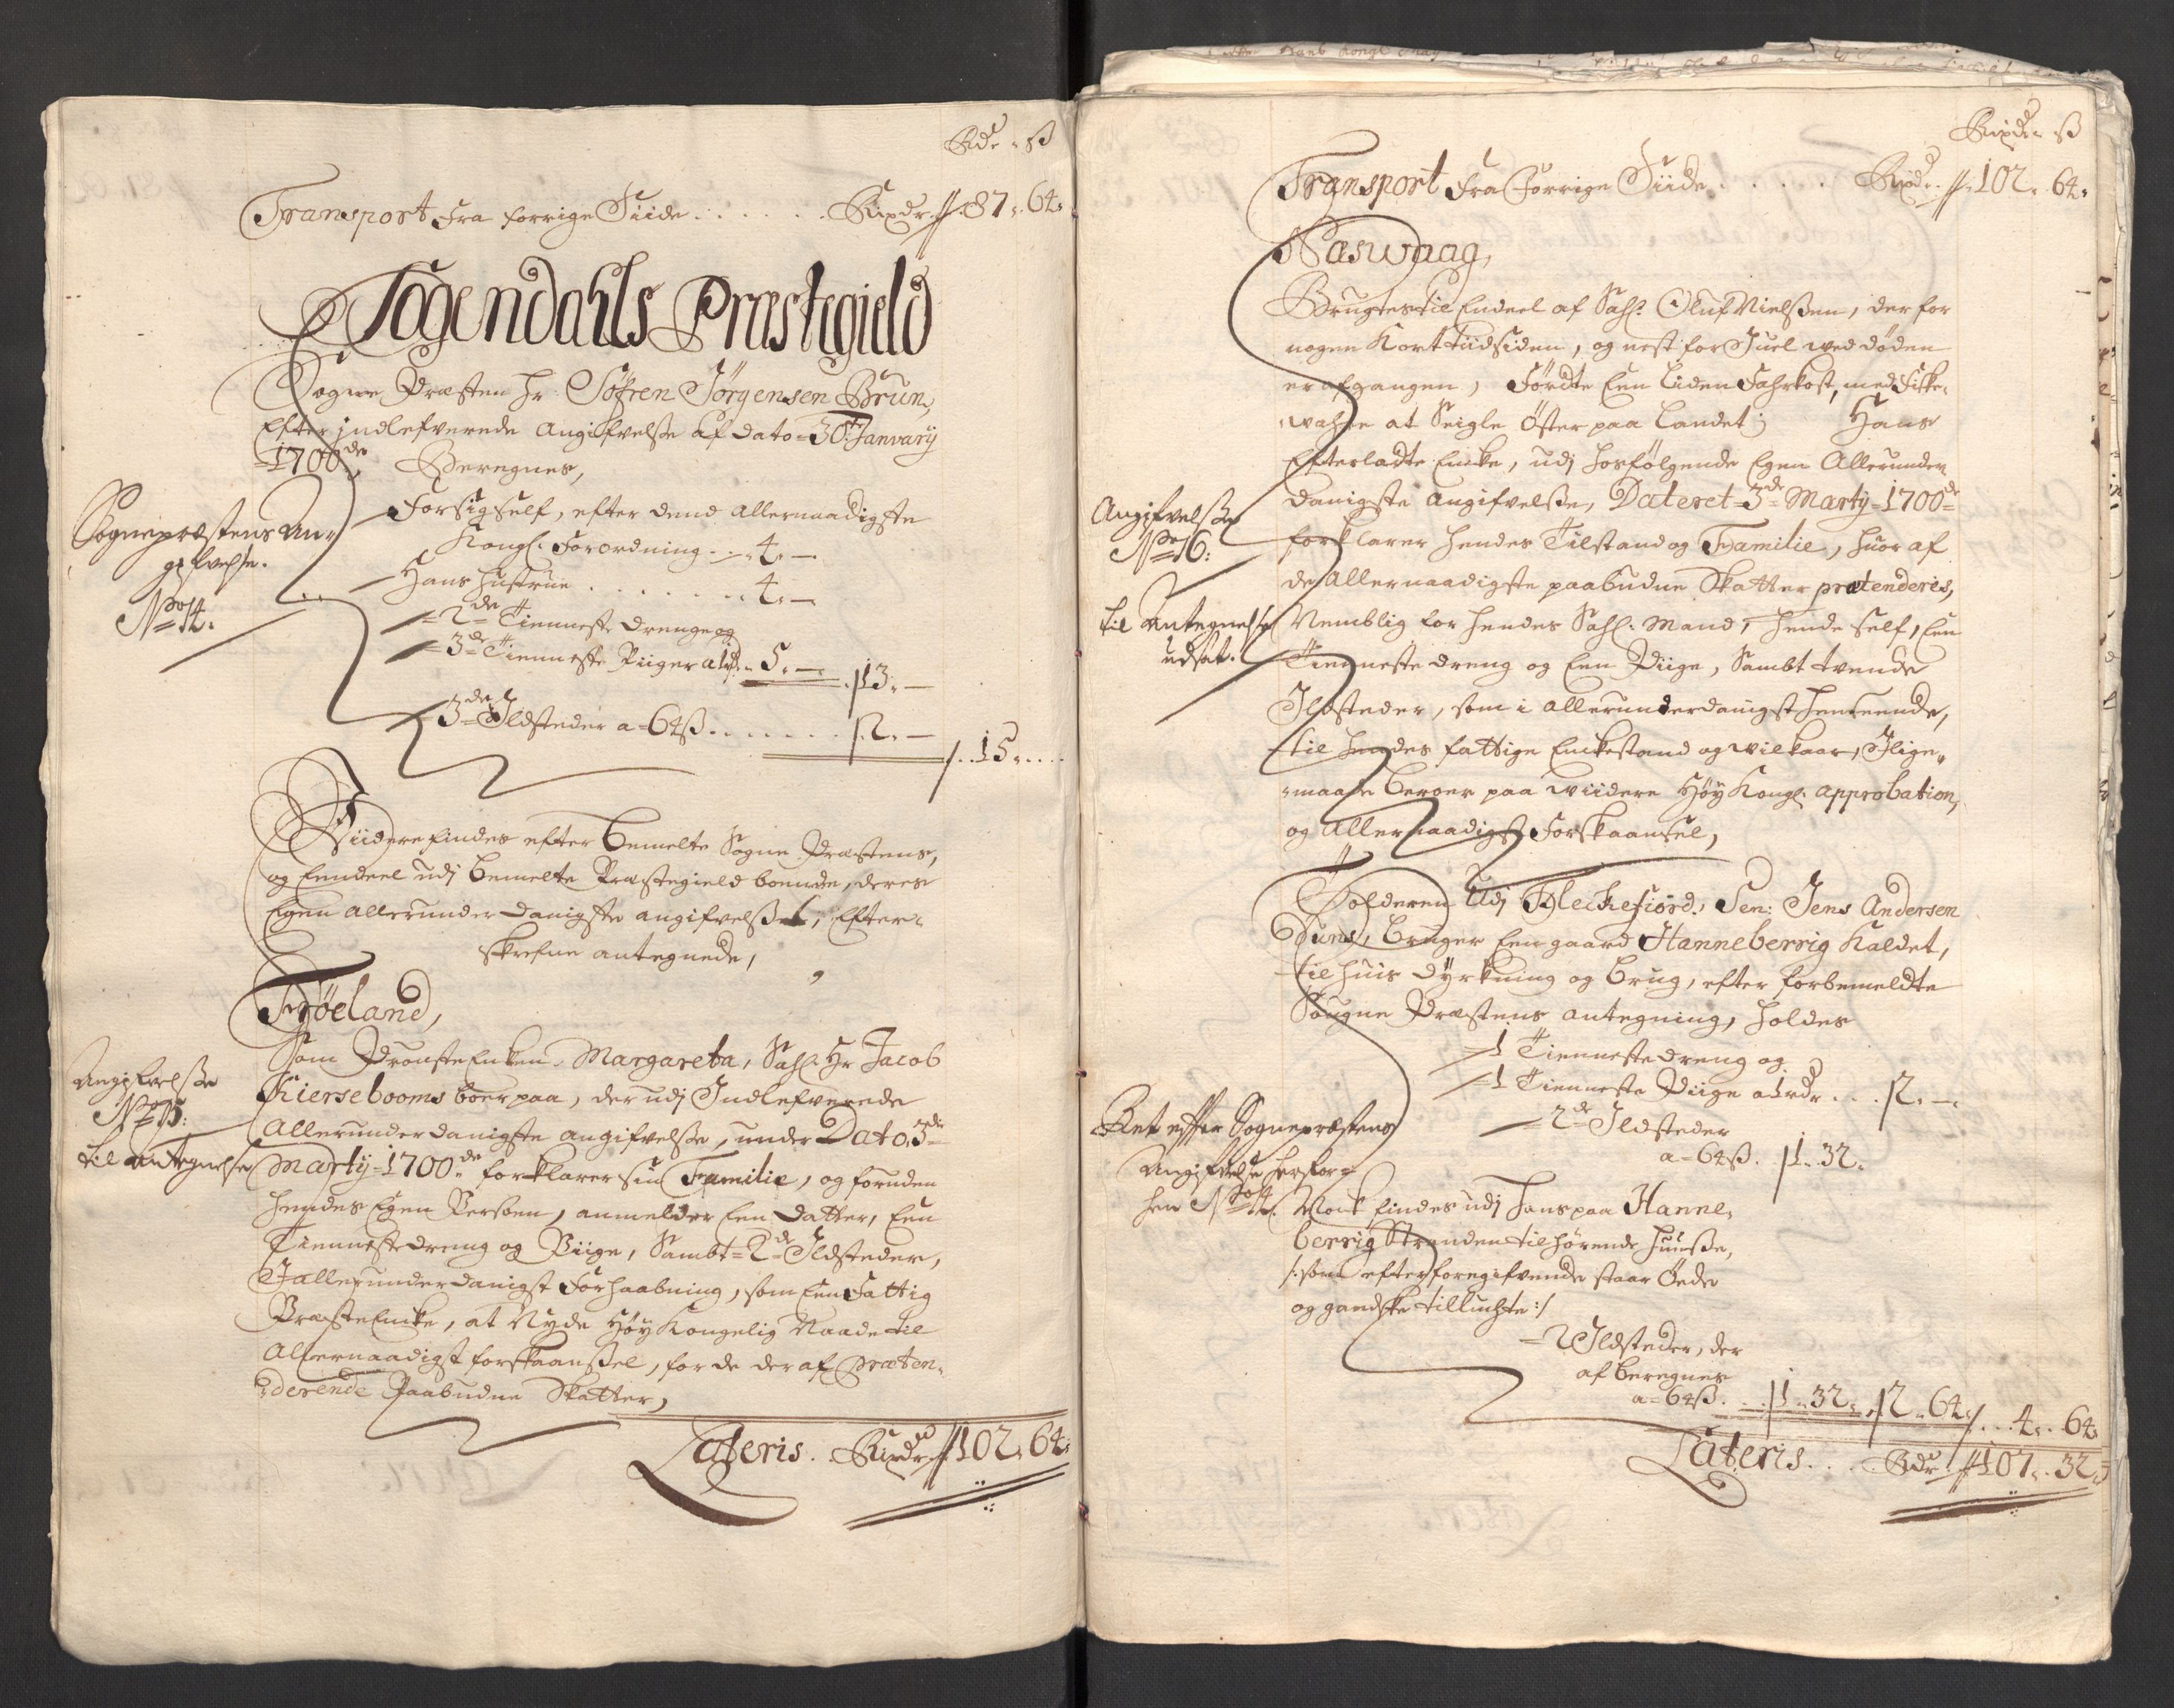 Rdr. ß
Transport fra forrige Siide . . . . . . Rixdr. 87. 64.
Togendahls Præstegield
Sogne Præsten Hr. Söfren Jörgensen Brun,
Efter indlefverede Angifvelse af dato 30. January
1700de Beregnes,
Sognepræstens An-
gifvelse.
No 14.
For sig self, efter dend allernaadigste
Kongl. Forordning . . 4. —
Hans Hustrue . . . . . . . 4. —
2de Tienneste drenge og
3de Tienneste Piiger a 1 rdr. 5. — 13. —
3de Ildsteder a 64 ß . . . . . . . 2. —
15. . . .
Viidere findes efter bemelte Sogne Præstens,
og Eendeel udj bemelte Præstegield boende, deres
Egen allerunderdanigste angifvelse, Efter-
skrefne antegnede,
Fröeland,
Angifvelse
No 15:
til Antegnelse
Som Provste Enken Margareta, Sahl. Hr Jacob
Kiersebooms boer paa, der udj Indlefverede
Allerunderdanigste angifvelse, under Dato 3de
Marty 1700de forklarer sin Familie, og foruden
hendes Egen Persoen, anmelder Een datter, Een
Tienneste dreng og Piige, Sambt 2de Ildsteder,
J allerunderdanigst Forhaabning, som Een Fattig
Præste Encke, at Nyde Høy Kongelig Naade til
Allernaadigst forskaansel, for de der af præten-
derende Paabudne Skatter,
Lateris. Rixdr. 102. 64.
Rixdr. ß
Transport fra Forrige Siide . . . . . Rixdr. 102. 64.
Næswaag,
Brugtes til Endeel af Sahl. Oluf Nielsen, der for
nogen Kort tiid siden, og nest for Juel wed døden
er afgangen, Førdte Een Liden Fahrkost, med Fiske-
wahre at Seigle Öster paa Landet; Hans
Efterladte Encke, udj hosfølgende Egen Allerunder
danigste Angifvelse, Dateret 3de Marty 1700de
Angifvelse
No 16:
forklarer hendes Tilstand og Familie, huor af
de Allernaadigste paabudne Skatter prætenderes,
til Antegnelse
udsat.
Nemblig for hendes Sahl. Mand, hende self, Een
Tienneste dreng og Een Piige, Sambt tvende
Ildsteder, som i allerunderdanigst henseende,
til hendes fattige Enckestand og wilkaar, Ilige-
maade beroer paa wiidere Høy Kongl. approbation,
og Allernaadigst Forskaansel,
Tolderen Udj Fleckefiord, Sen: Jens Andersen
Duns, bruger Een gaard Hanneberrig Kaldet,
til huis dyrkning og brug, efter forbemeldte
Sougne Præstens antegning, holdes
1 Tienneste dreng og
1 Tienneste Piige a 1 rdr. . . 2. —
2de Ildsteder
a 64 ß. 1. 32.
Ret effter Sognepræstens
Angifvelse herfor-
hen No 14.
Nock findes udj hans paa Hanne-
berrig Stranden tilhørende huuse,
/: som efter foregifvende staar Øede
og gandske tilluchte :/
2 Ildsteder, der
af beregnes
a 64 ß. . . 1. 32. 2. 64. . . 4. 64.
Lateris . . . Rdr. 107. 32.